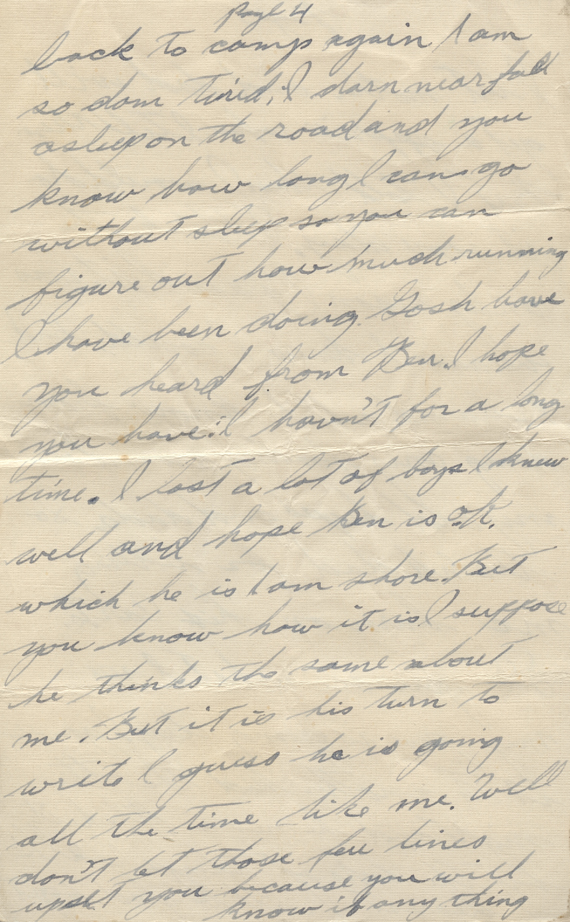 Page 4
back to camp again I am
so darn tired, I darn near fall
asleep on the road and you
know how long I can go
without sleep so you can
figure out how much running
I have been doing. Gosh have
you heard from Ben. I hope
you have. I havn't for a long
time. I lost a lot of boys I knew
well and hope Ben is ok.
which he is I am shore. But
you know how it is. I suppose
he thinks the same about
me. But it is his turn to
write I guess he is going
all the time like me. Well
don't let those few lines
upset you because you will
know if any thing